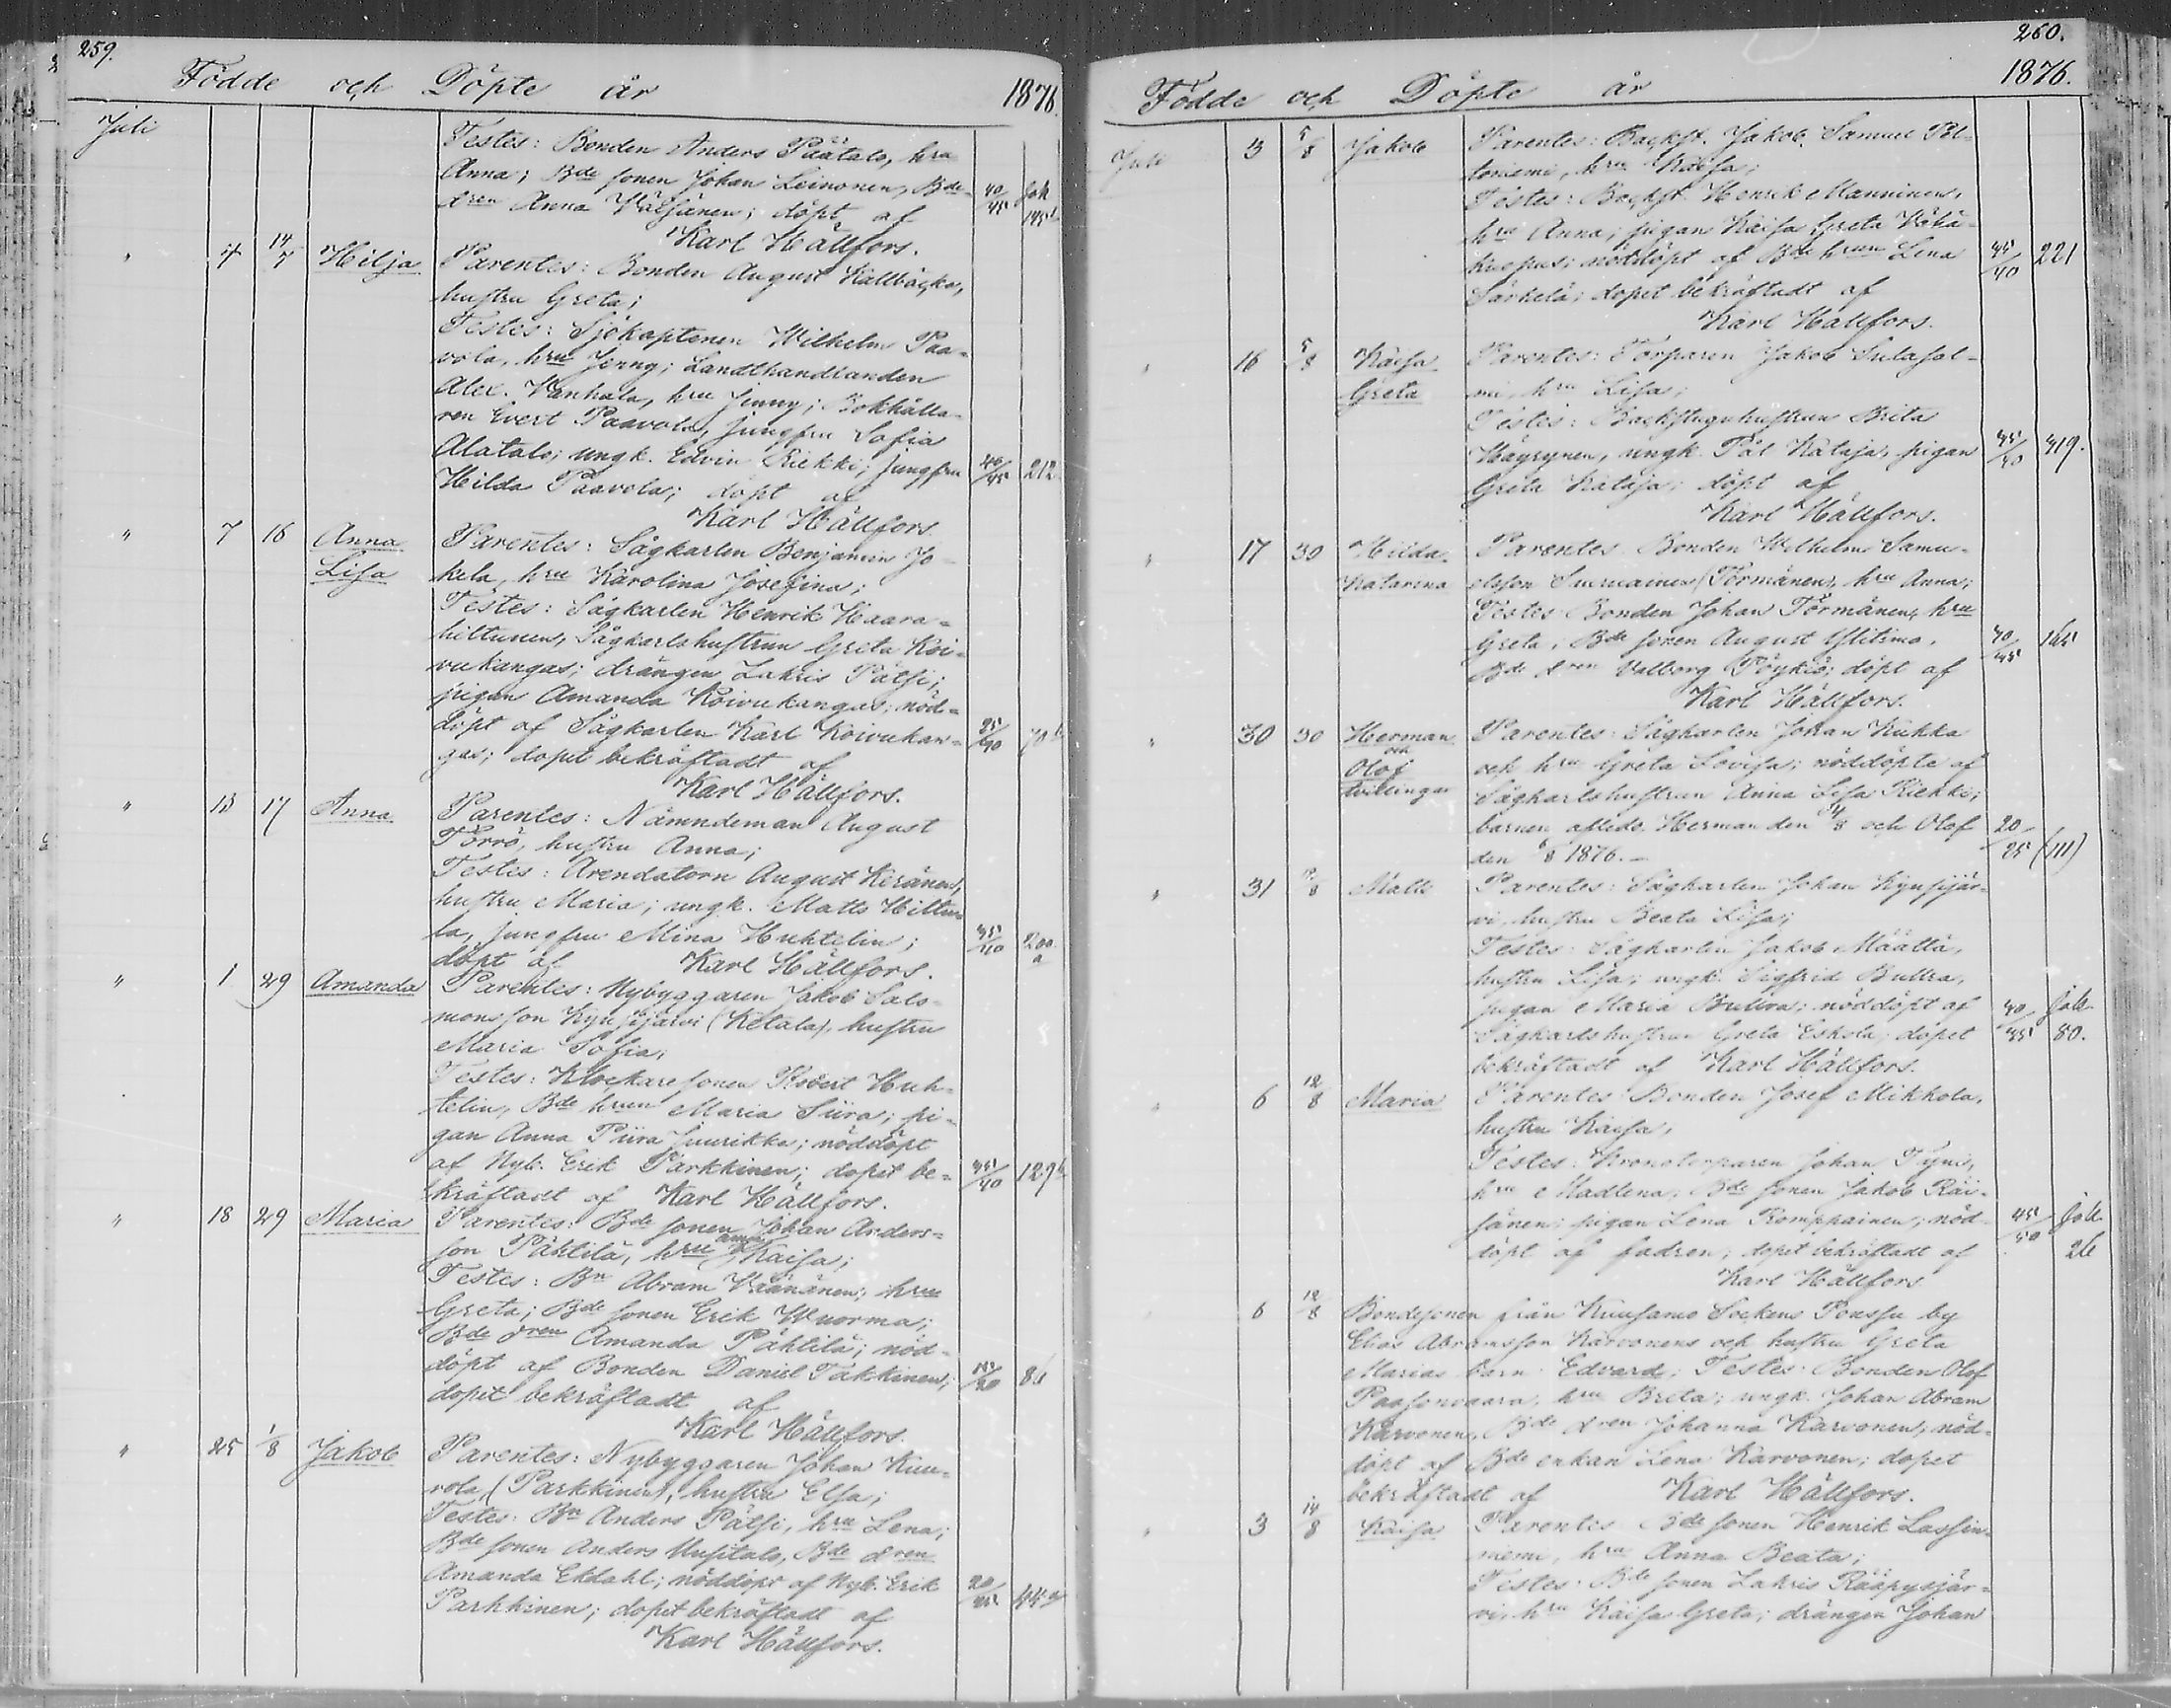 259.
Födde och Döpte år 1876.
Juli
Testes: Bonden Anders Päätalo, hru
Anna; Bde sonen Johan Leinonen, Bde
dren Anna Väisänen; döpt af 40/45
Karl Hällfors.
" 4 14/7 Hilja Parentes: Bonden August Kallbäcka,
hustru Greta;
Testes: Sjökaptenen Wilhelm Paa-
vola, hru Jenny; Landthandlanden
Alex. Vanhala, hru Jinny; Bokhålla-
ren Evert Paavola, jungfru Sofia
Alatalo; ungk. Edvin Riekki; jungfru 40/45 212
Hilda Paavola; döpt af
Karl Hällfors.
" 7 16 Anna Parentes: Sågkarlen Benjamin Jo-
Lisa kela, hru Karolina Josefina;
Testes: Sågkarlen Henrik Haara-
hiltunen, Sågkarlshustrun Greta Koi-
vukangas; drängen Zakris Pätsi;
pigan Amanda Koivukangas; nöd-
döpt af Sågkarlen Karl Koivukan-
gas; dopet bekräftadt af
Karl Hällfors.
" 13 17 Anna Parentes: Nämndeman August
Törrö, hustru Anna;
Testes: Arendatorn August Keränen,
hustru Maria; ungk. Matts Hiltu-
la, jungfru Mina Huhtelin; 35/40 200 a
döpt af Karl Hällfors.
" 1 29 Amanda Parentes: Nybyggaren Jakob Salo-
monsson Kynsijärvi (Ketala), hustru
Maria Sofia;
Testes: Klockaresonen Robert Huh-
telin, Bde hrun Maria Siira; pi-
gan Anna Piira Juurikka; nöddöpt
af Nyb. Erik Parkkinen; dopet be- 35/40 129
kräftadt af Karl Hällfors.
" 18 29 Maria Parentes: Bde sonen Johan Anders-
son Pähtilä, hru Anna Kaisa;
Testes: Bn Abram Väänänen; hru
Greta; Bde sonen Erik Wuorma;
Bde dren Amanda Pähtilä; nöd-
döpt af Bonden Daniel Takkinen;
dopet bekräftadt af
Karl Hällfors.
" 25 1/8 Jakob Parentes: Nybyggaren Johan Kuu-
rola (Parkkinen), hustru Elsa;
Testes: Bn Anders Pätsi, hru Lena;
Bde sonen Anders Uusitalo, Bde dren
Amanda Ekdahl; nöddöpt af Nyb. Erik
Parkkinen; dopet bekräftadt af
Karl Hällfors.
260.
Födde och Döpte år 1876.
Juli 3 5/8 Jakob Parentes: Backst. Jakob Samuel Pel-
toniemi, hru Kaisa;
Testes: Backst. Henrik Manninen,
hru Anna; pigan Kaisa Greta Vähä-
kuopus; nöddöpt af Bde hrun Lena 45/40 221
Särkelä; dopet bekräftadt af
Karl Hällfors.
" 16 5/8 Kaisa Parentes: Torparen Jakob Sulasal-
Greta mi, hru Lisa;
Testes: Backstuguhustrun Brita
Häyrynen, ungk. Pål Kataja, pigan 45/40 419.
Greta Kataja; döpt af
Karl Hällfors.
" 17 30 Hilda Parentes Bonden Wilhelm Samu-
Katarina elsson Suorsainen (Törmänen), hru Anna;
Testes Bonden Johan Törmänen, hru
Greta; Bde sonen August Ylitimo, 40/45 165
Bde dren Valborg Pöykiö; döpt af
Karl Hällfors.
" 30 30 Herman Parentes: Sågkarlen Johan Kukka
och
Olof och hru Greta Lovisa; nöddöpte af
tvillingar Sågkarlshustrun Anna Lisa Riekki;
barnen aflede Herman den 4/8 och Olof 20/25 (111)
den 6/8 1876. -
" 31 12/8 Matts Parentes: Sågkarlen Johan Kynsijär-
vi, hustru Beata Lisa;
Testes: Sågkarlen Jakob Määttä,
hustru Lisa; ungk. Sigfrid Buttra,
pigan Maria Buttra; nöddöpt af 40/45
Sågkarlshustrun Greta Eskola; dopet 80.
bekräftadt af Karl Hällfors.
" 6 12/8 Maria Parentes Bonden Josef Mikkola,
hustru Kaisa,
Testes: Kronotorparen Johan Tyni,
hru Madlena; Bde sonen Jakob Räi-
sänen; pigan Lena Romppainen; nöd- 45/50
döpt af fadren; dopet bekräftadt af 26
Karl Hällfors
6 12/8 Bondesonen från Kuusamo Sockens Poussu by
Elias Abramsson Karvonens och hustru Greta
Marias barn Edvard; Testes: Bonden Olof
Paasonvaara, hru Brita; ungk. Johan Abram
Karvonen, Bde dren Johanna Karvonen; nöd-
döpt af Bde enkan Lena Karvonen; dopet
bekräftadt af Karl Hällfors.
" 3 14/8 Kaisa Parentes Bde sonen Henrik Lassin-
niemi, hru Anna Beata;
Testes: Bde sonen Zakris Rääpysjär-
vi, hru Kaisa Greta; drängen Johan